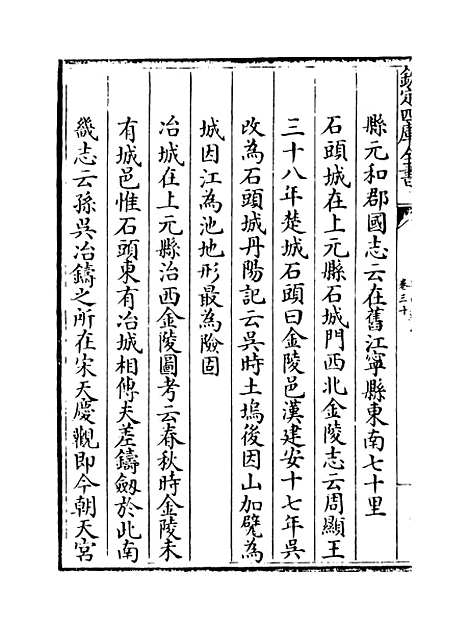 欽定四庫全書
卷三十
縣元和郡國志云在舊江寧縣東南七十里
石頭城在上元縣石城門西北金陵志云周顯王
三十八年楚城石頭曰金陵邑漢建安十七年吳
改為石頭城丹陽記云吳時土塢後因山加甓為
城因江為池地形最為險固
冶城在上元縣治西金陵圖考云春秋時金陵未
有城邑惟石頭東有冶城相傳夫差鑄劔於此南
畿志云孫吳冶鑄之所在宋天慶觀即今朝天宮